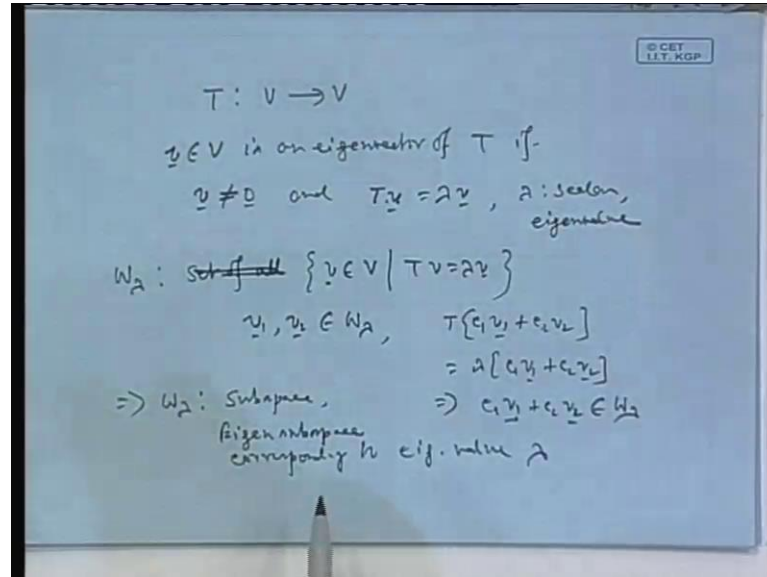 © CET
I.I.T. KGP
T : V → V
v ∈ V is an eigenvector of T if
v ≠ 0 and T v = λ v , λ : scalar,
eigenvalue
W_λ : { v ∈ V | T v = λ v }
v_1 , v_2 ∈ W_λ , T{c_1 v_1 + c_2 v_2}
= λ [c_1 v_1 + c_2 v_2]
=> W_λ : Subspace, => c_1 v_1 + c_2 v_2 ∈ W_λ
Eigen subspace
corresponding to eig. value λ